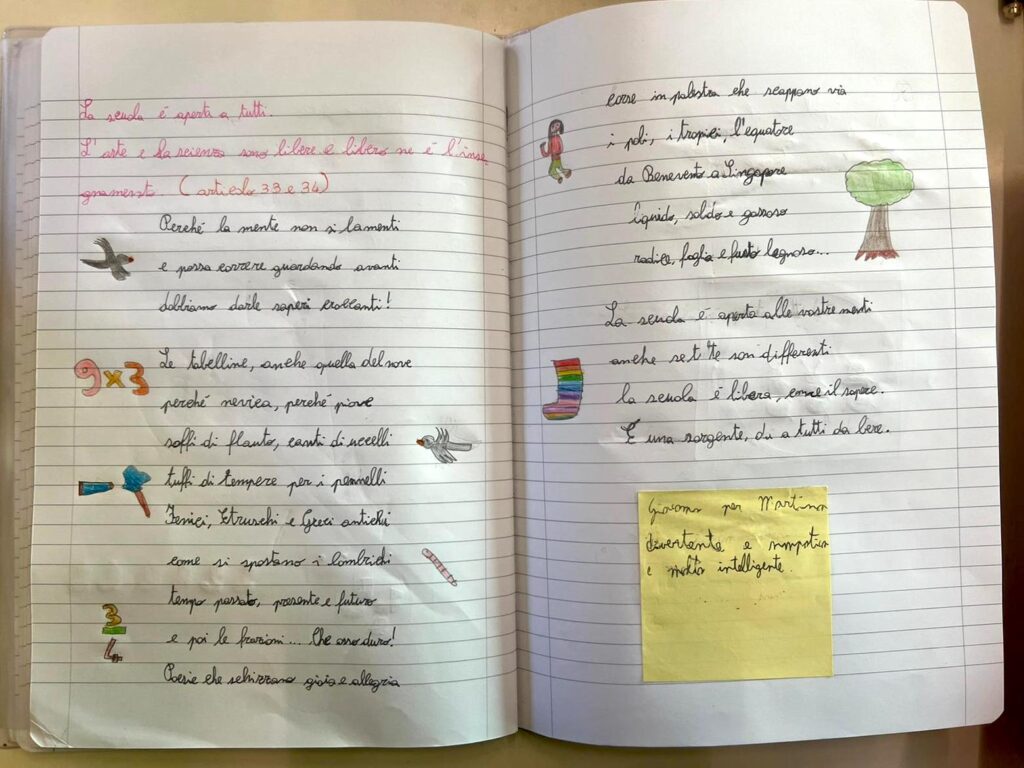 La scuola è aperta a tutti.
L'arte e la scienza sono libere e libero ne è l'inse
gnamento. (articolo 33 e 34)
Perché la mente non si lamenti
e possa correre guardando avanti
dobbiamo darle saperi croccanti!
9x3
Le tabelline, anche quella del nove
perché nevica, perché piove
soffi di flauto, canti di uccelli
tuffi di tempere per i pennelli
Fenici, Etruschi e Greci antichi
come si spostano i lombrichi
tempo passato, presente e futuro
3
4
e poi le frazioni... Che osso duro!
Poesie che schizzano gioia e allegria
corse in palestra che scappano via
i poli, i tropici, l'equatore
da Benevento a Singapore
liquido, solido e gassoso
radice, foglia e fusto legnoso...
La scuola è aperta alle vostre menti
anche se tutte son differenti
la scuola è libera, come il sapere.
È una sorgente, dà a tutti da bere.
Giacomo per Martina
divertente e simpatica
e molto intelligente.